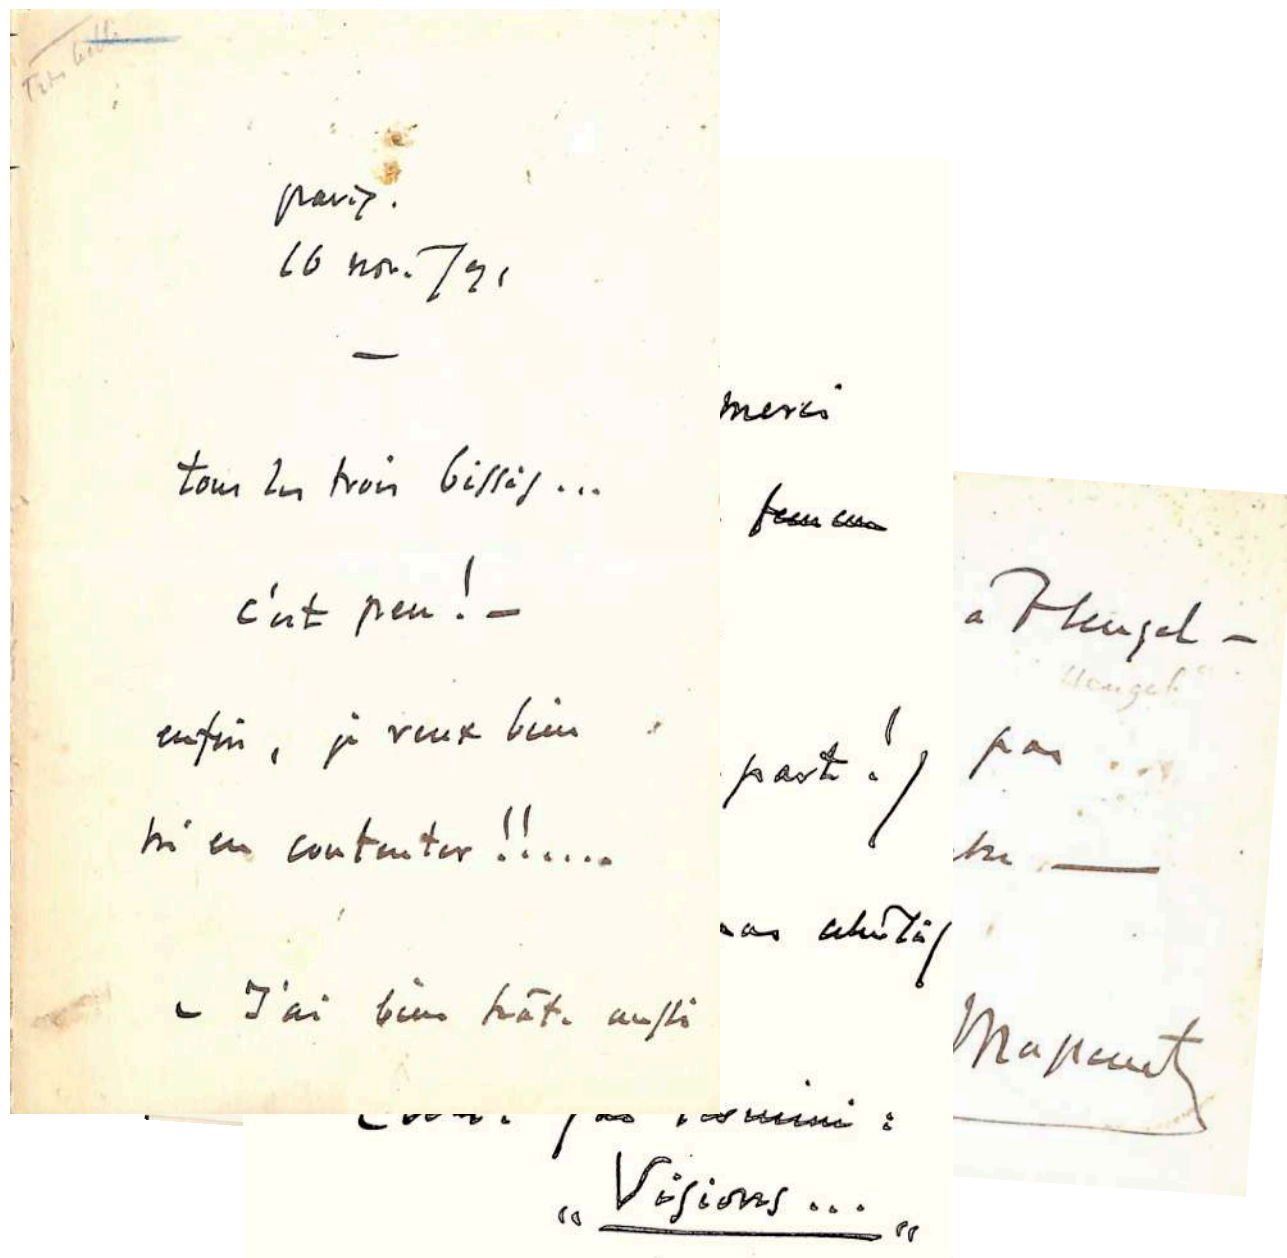 Très belle
paris.
16 nov. /91
tous les trois bissés...
c'est peu! —
enfin, je veux bien
m'en contenter!!.....
— J'ai bien hâte aussi
merci
part!)
pas
"Visions..."
a Heugel —
"Heugel"
pas
Massenet